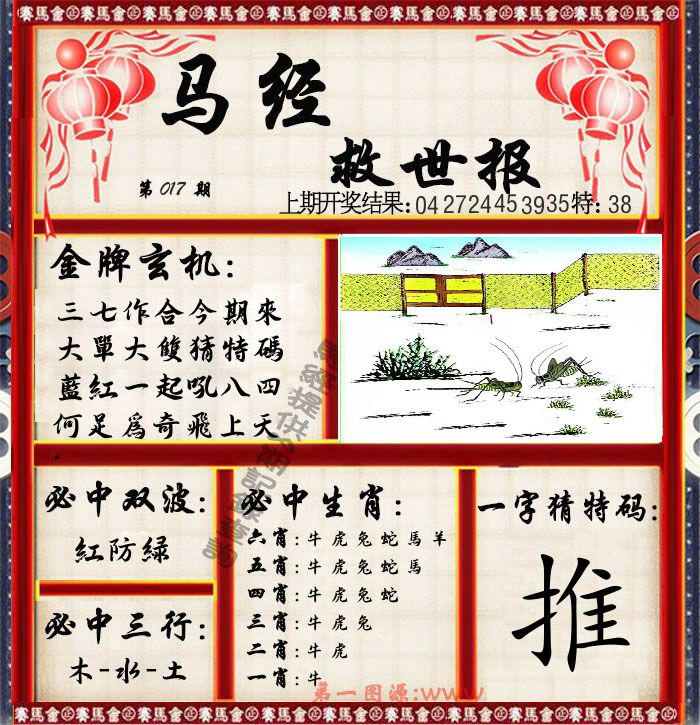 賽馬會 賽馬會 賽馬會 賽馬會 賽馬會 賽馬會 賽馬會 賽馬會
马经
救世报
第 017 期
上期开奖结果:04 27 24 45 39 35 特:38
金牌玄机:
三七作合今期來
大單大雙猜特碼
藍紅一起吼八四
何足為奇飛上天
必中双波:
紅防綠
必中三行:
木-水-土
必中生肖:
六肖:牛虎兔蛇馬羊
五肖:牛虎兔蛇馬
四肖:牛虎兔蛇
三肖:牛虎兔
二肖:牛虎
一肖:牛
一字猜特码:
推
第一图源:www